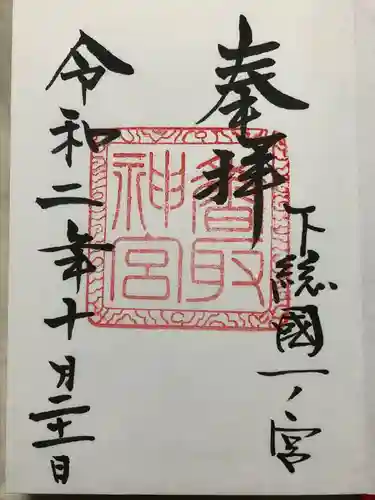 奉拝
下総國一ノ宮
香取神宮
令和二年十月二十一日